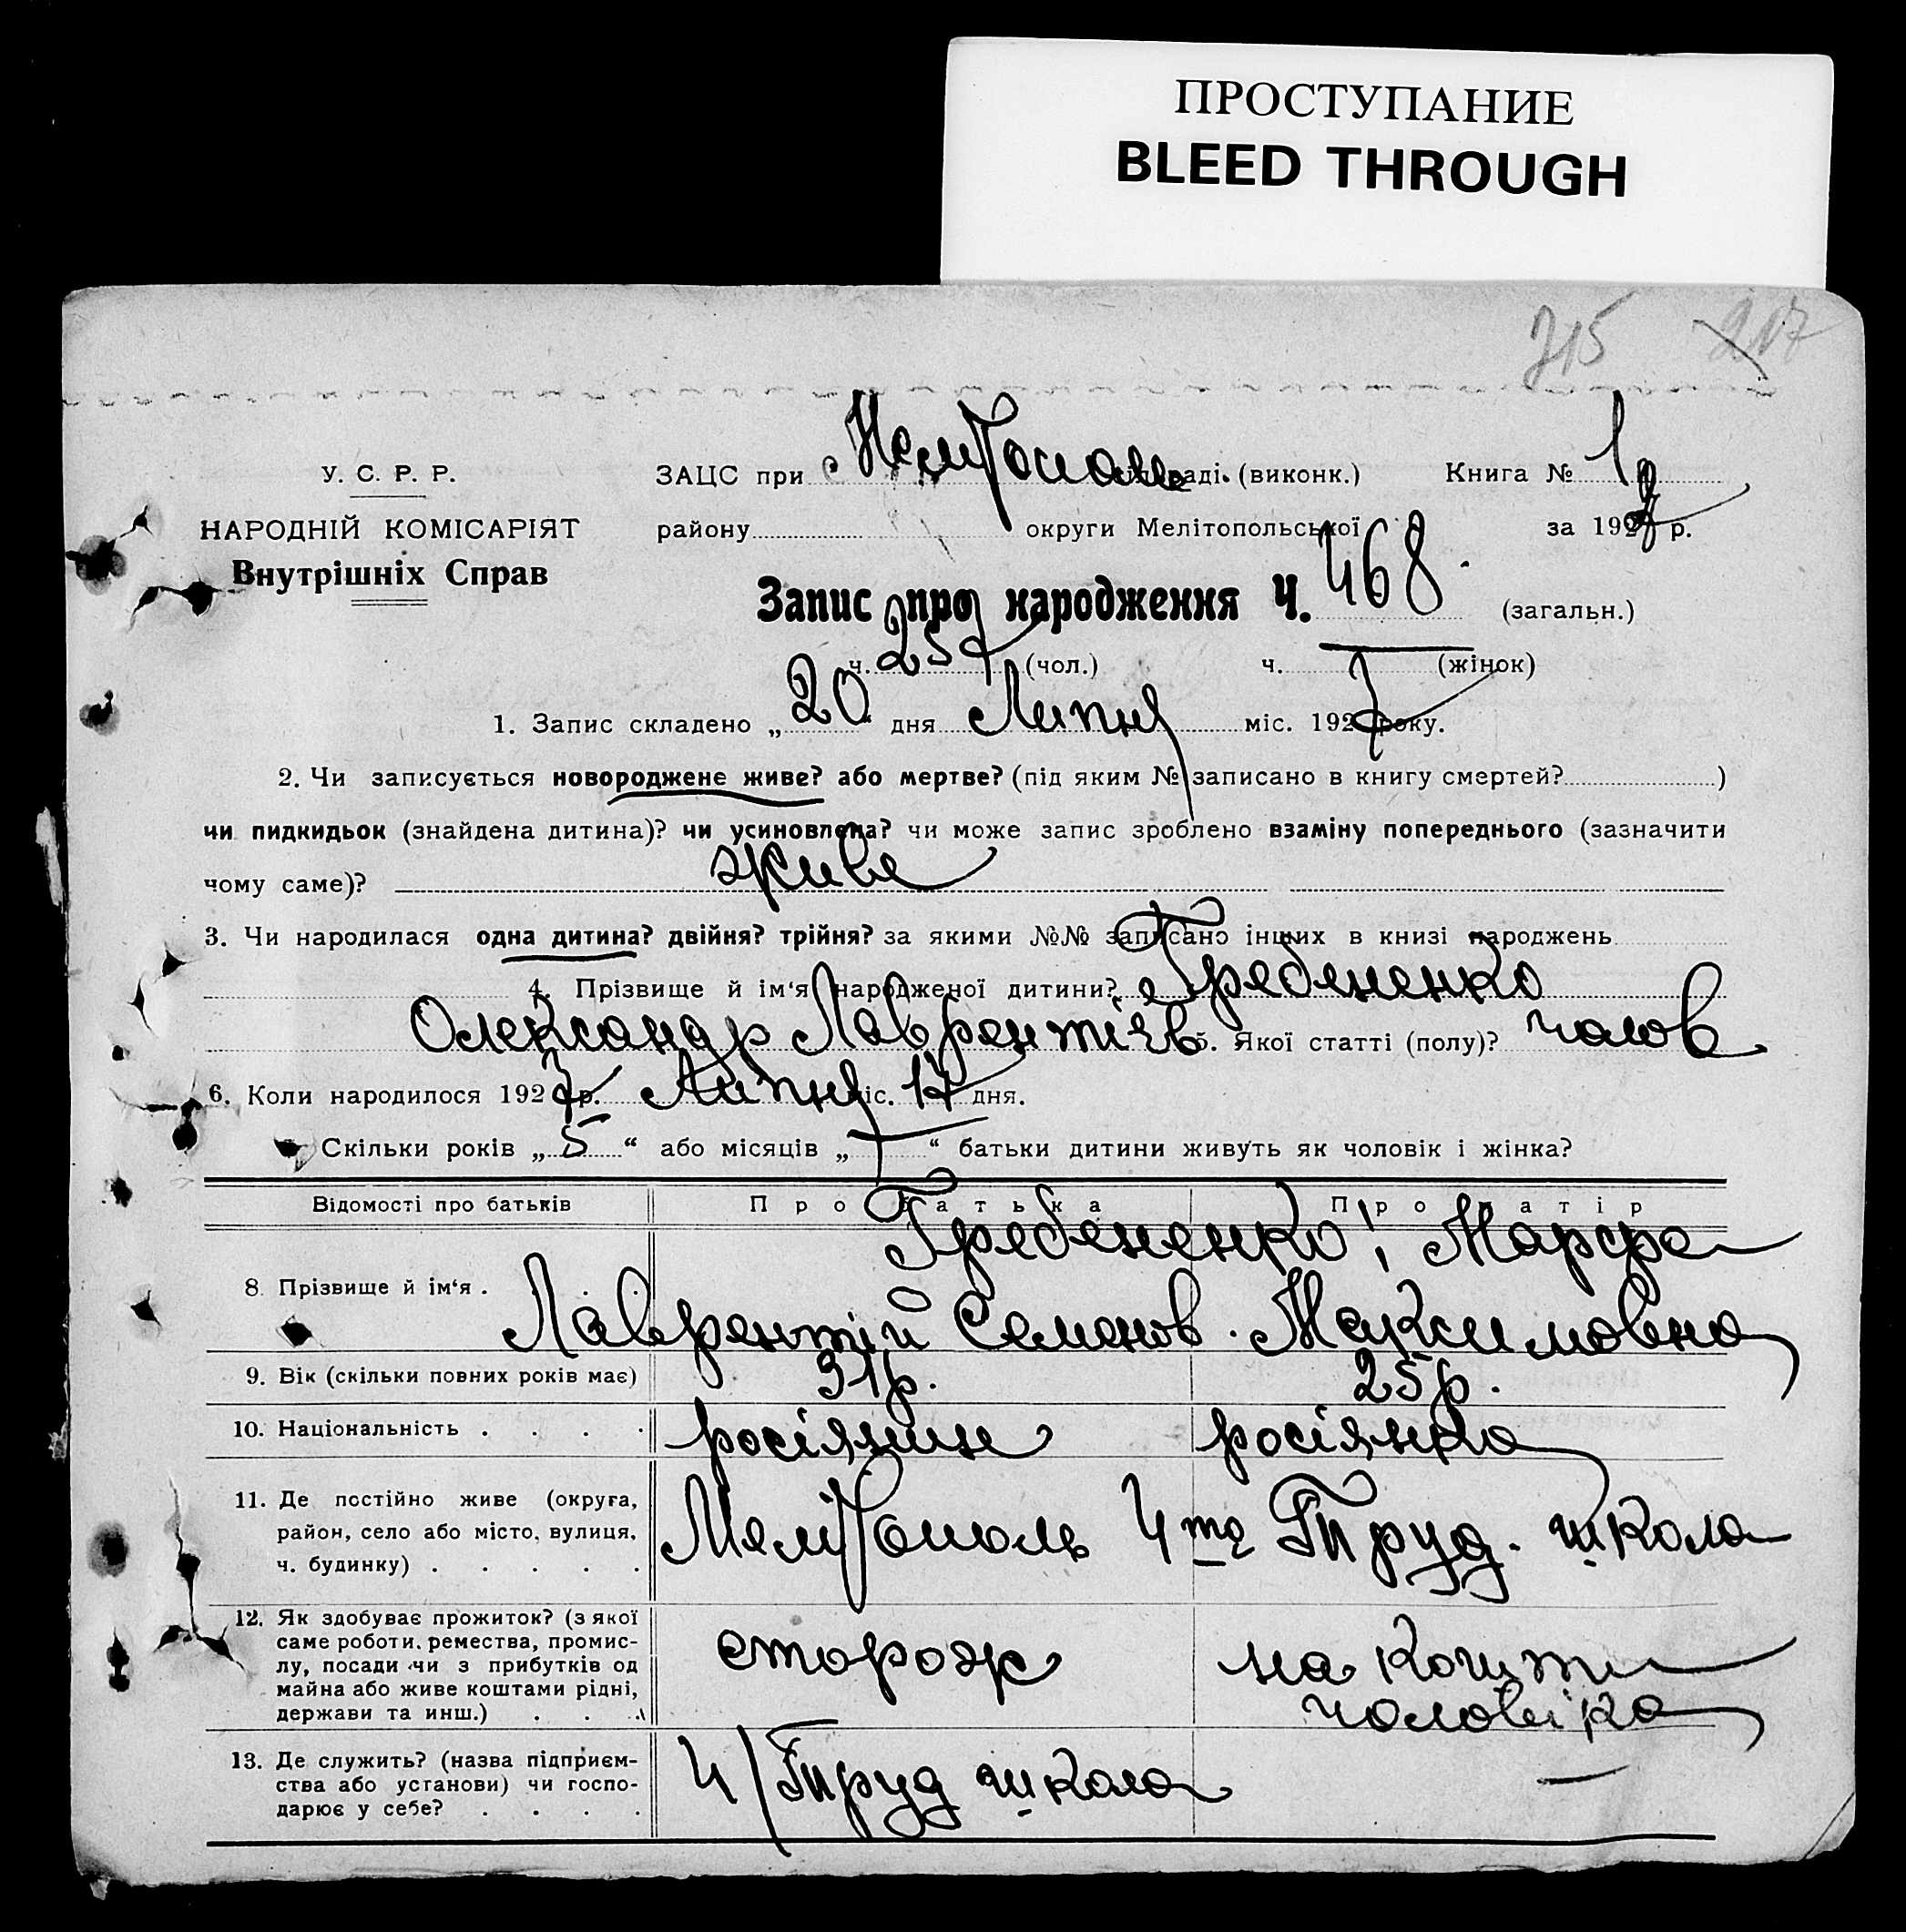 ПРОСТУПАНИЕ
BLEED THROUGH
215 217
У. С. Р. Р. ЗАЦС при Мелітополь раді. (виконк.) Книга № 1
НАРОДНІЙ КОМІСАРІЯТ району округи Мелітопольської за 1927 р.
Внутрішніх Справ
Запис про народження Ч. 468 (загальн.)
ч. 257 (чол.) ч. (жінок)
1. Запис складено „20 дня Липня міс. 1927 року.
2. Чи записується новороджене живе? або мертве? (під яким № записано в книгу смертей? )
чи пидкидьок (знайдена дитина)? чи усиновлена? чи може запис зроблено взаміну попереднього (зазначити
чому саме)? живе
3. Чи народилася одна дитина? двійня? трійня? за якими №№ записано інших в книзі народжень
4. Прізвище й ім‘я народженої дитини? Гребененко
Олександр Лаврентіев 5. Якої статті (полу)? чолов
6. Коли народилося 1927 р. Липня міс. 17 дня.
Скільки років „5“ або місяців „—“ батьки дитини живуть як чоловік і жінка?
Відомості про батьків Про батька Про матір
8 Прізвище й ім‘я . Гребененко Марфа
Лаврентій Семенов. Максимовна
9. Вік (скільки повних років має) 31 р. 25 р.
10. Національність . . . . росіянин росіянка
11. Де постійно живе (округа, район, село або місто, вулиця, ч. будинку) . . . . . Мелітополь 4 та Труд. школа
12. Як здобуває прожиток? (з якої
саме роботи, ремества, промис-
лу, посади чи з прибутків од
майна або живе коштами рідні,
держави та инш.) . . . сторож на кошти
чоловіка
13. Де служить? (назва підприєм-
ства або установи) чи госпо-
дарює у себе? . . . . 4/Труд школа —